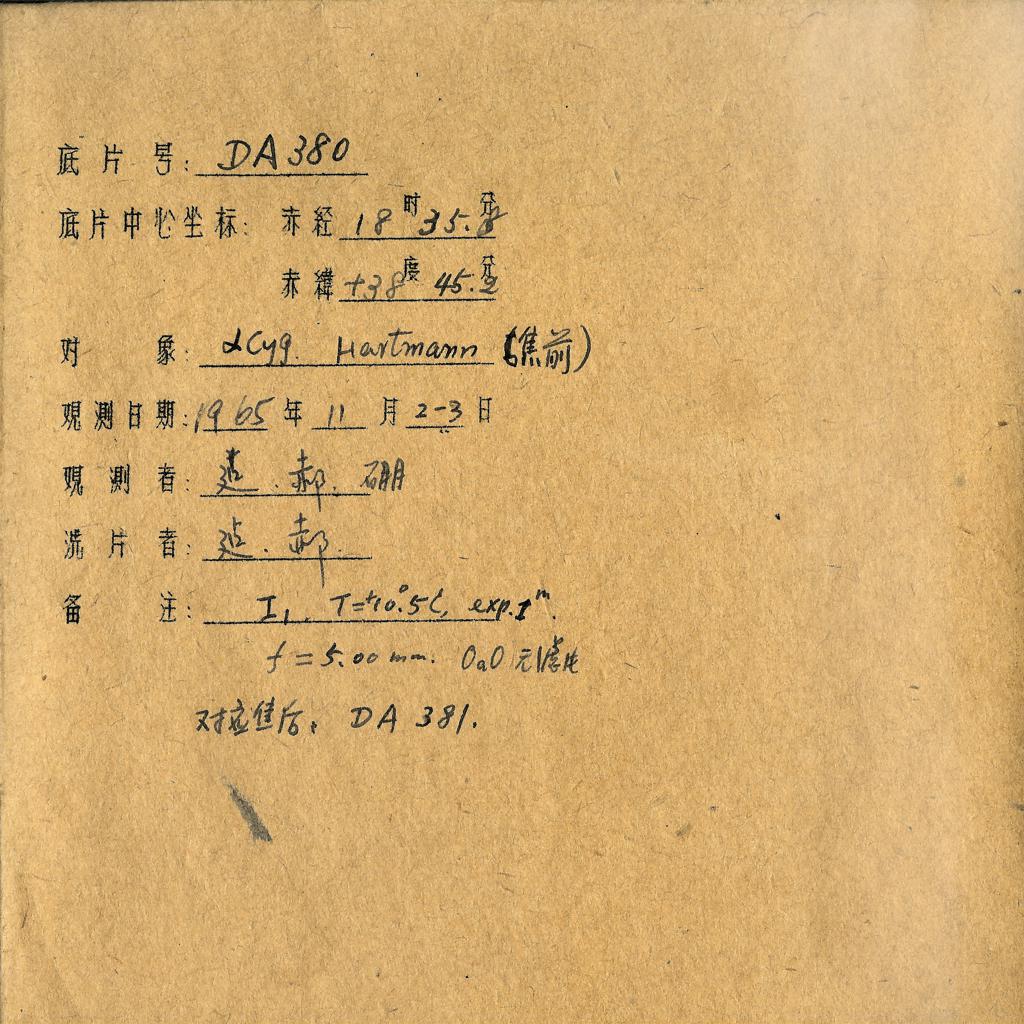 底片号: DA380
底片中心坐标: 赤经 18时35.8分
赤緯 +38度45.2分
对象: αCyg. Hartmann (焦前)
观測日期: 1965年11月2-3日
观測者: 郝. 硼
洗片者: 郝.
备注: I₁, T=+10°.5C, exp.1ᵐ.
f=5.00mm. OaO 无滤片
对应焦后: DA 381.